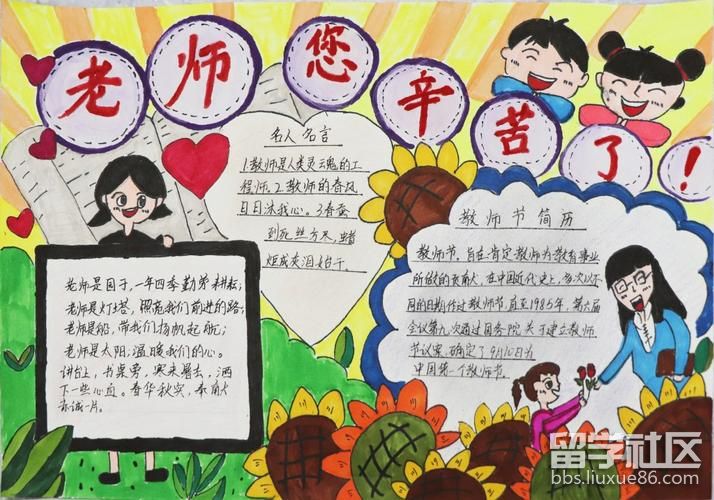 老师您辛苦了!
名人名言
1.教师是人类灵魂的工
程师.2.教师的春风
日日沐我心。3.春蚕
到死丝方尽,蜡
炬成灰泪始干.
教师节简历
教师节,旨在肯定教师为教育事业
所做的贡献。在中国近代史上,多次以不
同的日期作过教师节.直至1985年,第六届
会议第九次通过国务院关于建立教师
节议案,确定了9月10日为
中国第一个教师节。
老师是园丁,一年四季勤劳耕耘;
老师是灯塔,照亮我们前进的路;
老师是船,带我们扬帆起航;
老师是太阳,温暖我们的心。
讲台上,书桌旁,寒来暑去,洒
下一些心血。春华秋实,奉献
赤诚一片。
留学社区
bbs.liuxue86.com